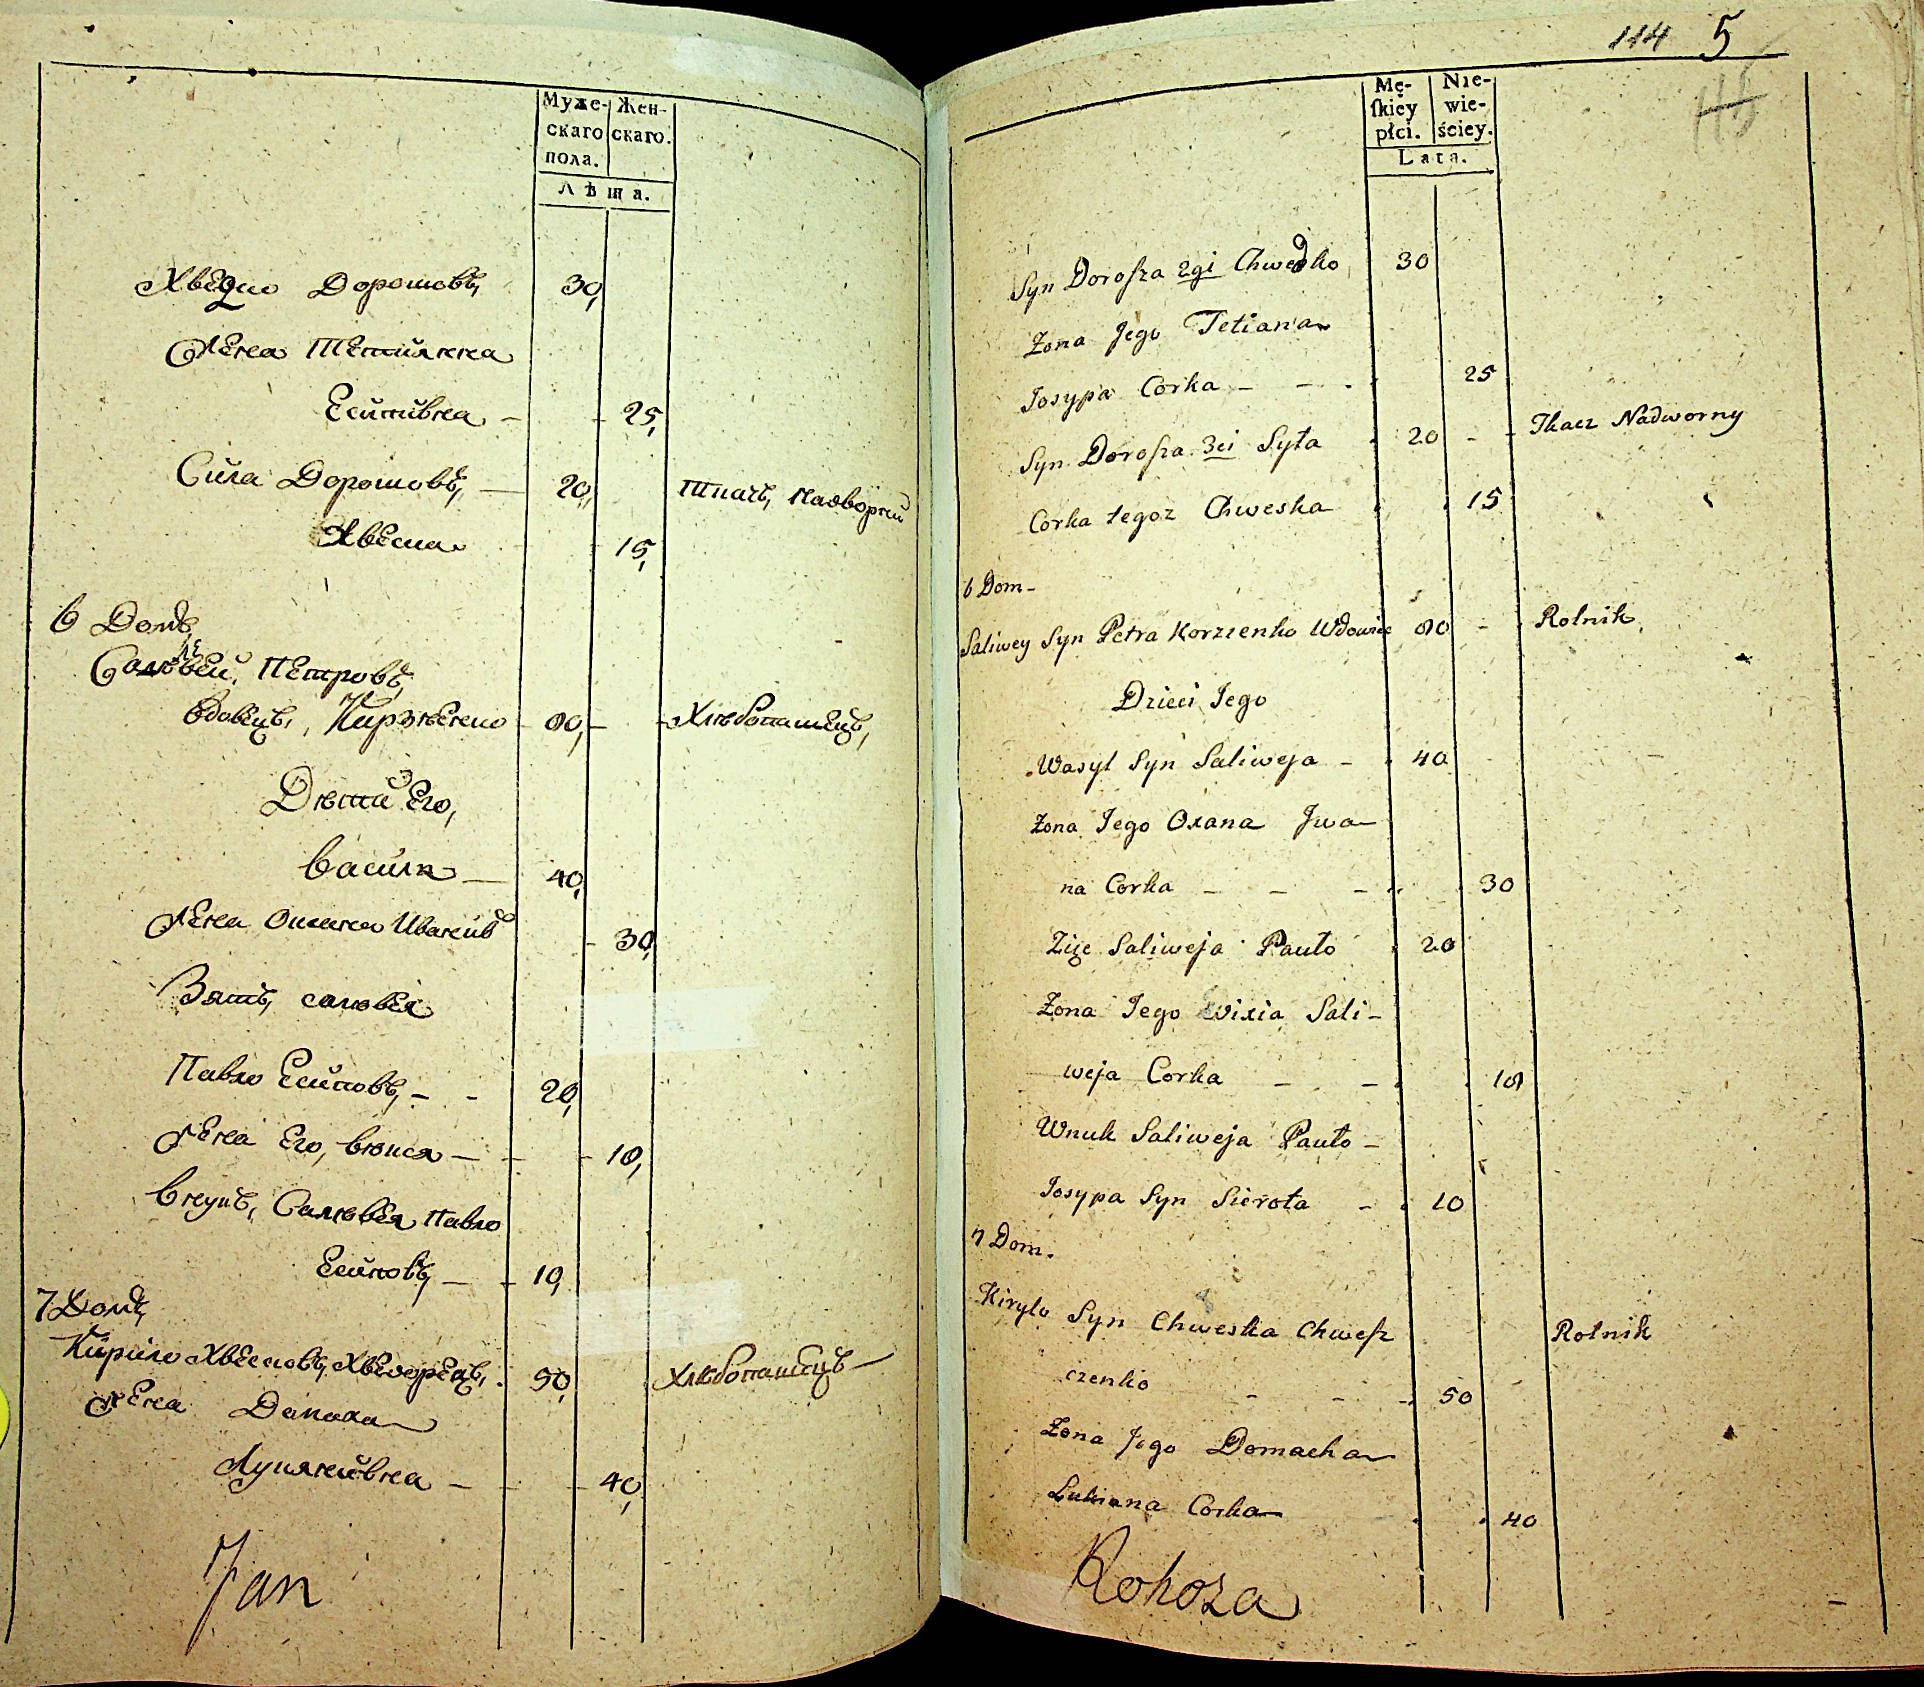 Муже- Жен-
скаго скаго.
пола.
Лѣта.
Хведко Дорошовъ, 30,
Жена Тетiянна
Есипивна - - 25,
Сила Дорошовъ, - 20, Ткачъ, Надворний
Хвеска 15,
6 Домъ,
Саливей, Петровъ,
вдовецъ, Кирзѣенко - 80, - - Хлѣбопашецъ,
Дѣти Его,
василь - 40,
Жена Оксана Иванив - 30,
Зять, саливея
Павло Есиповъ, - - 20,
Жена Его, вюкся - - - 18,
внукъ, Саливея Павло
Есиповъ, - - 10,
7 Домъ,
Кирило Хвесковъ, 50, Хлѣбопашецъ -
Жена Домаха
Лукянивна - - - 40,
Jan
114 5
115
Mę- Nie-
ſkiey wie-
płci. ściey.
Lata.
Syn Doroſza 2gi Chwedko 30
Zona Jego Tetiana
Josypa Corka - - . 25
Syn Doroſza 3ci Syła 20 - - Tkacz Nadworny
Corka tegoz Chweska 15
6 Dom -
Saliwey Syn Petra Korzienko Wdowiec 80 - Rolnik
Dzieci Jego
Wasyl Syn Saliweja - 40
Zona Jego Oxana Jwa-
na Corka - - - 30
Zięc Saliweja Pauło 20
Zona Jego Wixia Sali-
weja Corka - - 18
Wnuk Saliweja Pauło -
Josypa Syn Sierota - 10
7 Dom.
Kiryło Syn Chweska Chweſz Rolnik
czenko - - - 50
Zona Jego Domacha
Lukiana Corka 40
Rohoza